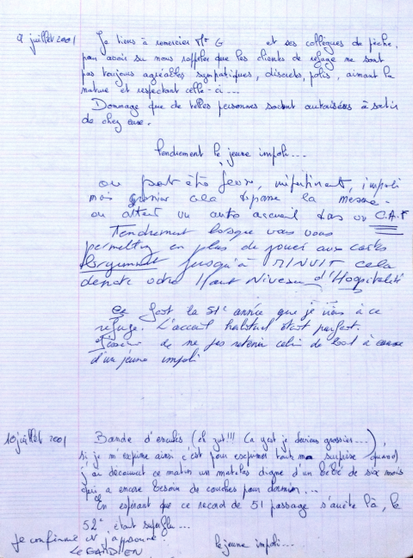 9 juillet 2001 Je tiens à remercier Mr G et ses collègues de pêche,
pour avoir su nous rappeler que les clients de refuge ne sont
pas toujours agréables sympatiques, discrets, polis, aimant la
nature et respectant celle-ci...
Dommage que de telles personnes soient autorisées à sortir
de chez eux.
Tendrement le jeune impoli...
on peut être jeune, impertinent, impoli
mais cela dépasse la mesure
un autre accueil dans un C.A.F
Tendrement lorsque vous vous
permettez en plus de jouer aux cartes
Bruyamment jusqu'à MINUIT cela
dénote votre Haut Niveau d'Hospitalité
fait la 51e année que je viens à ce
refuge. L'accueil habituel était parfait.
de ne pas retenir celui de à cause
d'un jeune impoli
10 juillet 2001 Bande d'enculés (oh zut!!! Ca y est je deviens grossier...),
si je m'exprime ainsi c'est pour exprimer toute ma surprise quand
j'ai découvert ce matin un matelas digne d'un bébé de six mois
qui a encore besoin de couches pour dormir...
En espérant que ce record de 51 passages s'arrête là, le
52e était superflu...
Je confirme et j'approuve. le jeune impoli...
LE GARDIEN